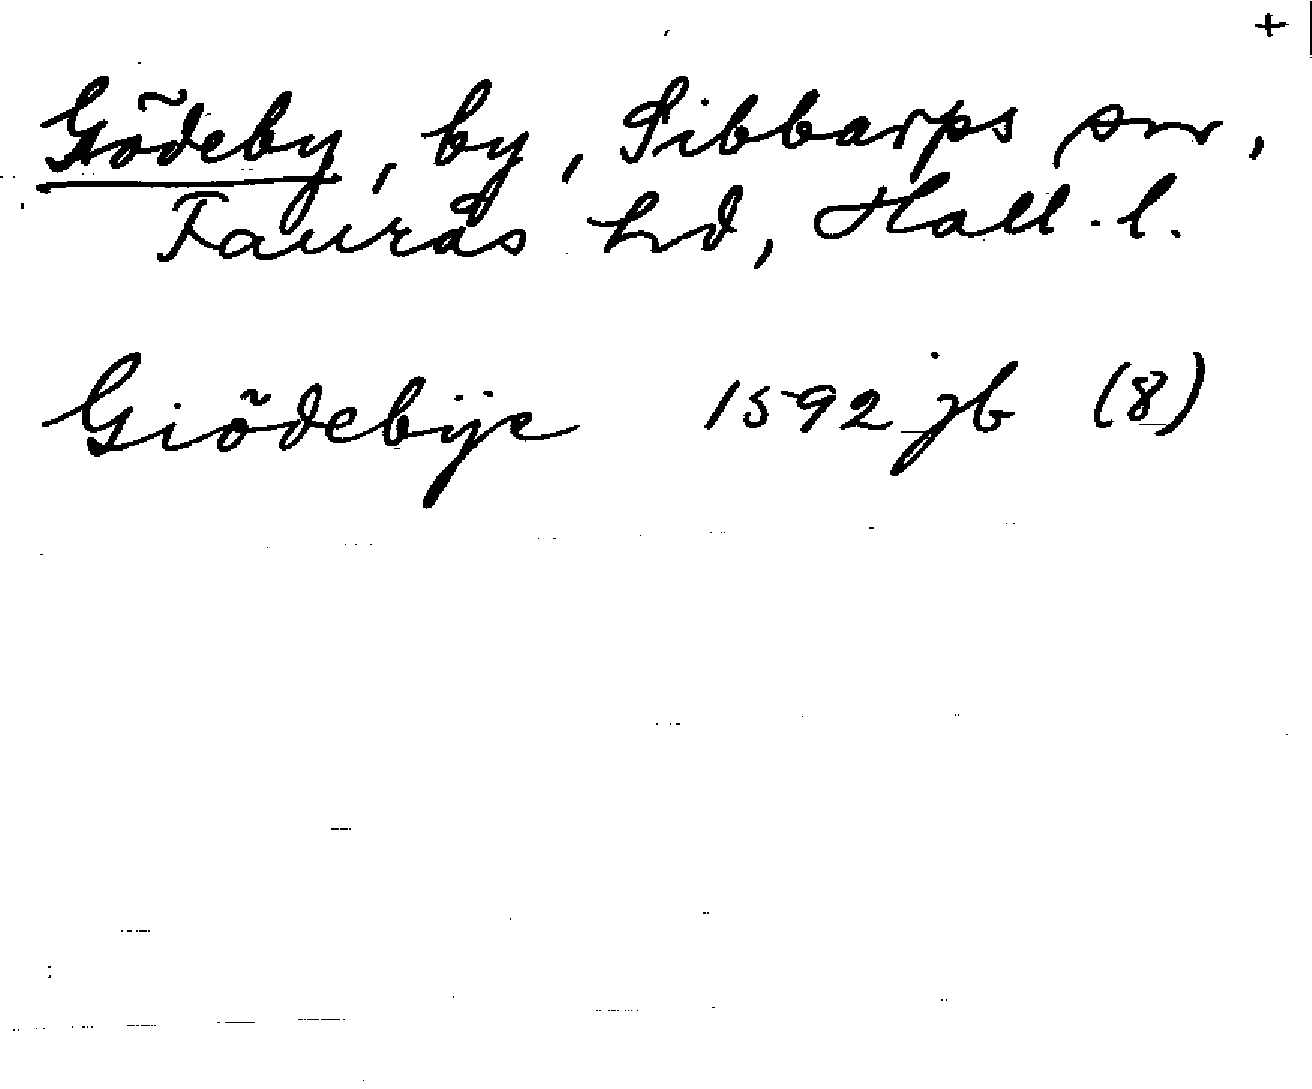 +
Gödeby, by, Sibbarps sn,
Faurås hd, Hall. l.
Giödebÿe 1592 jb (8)